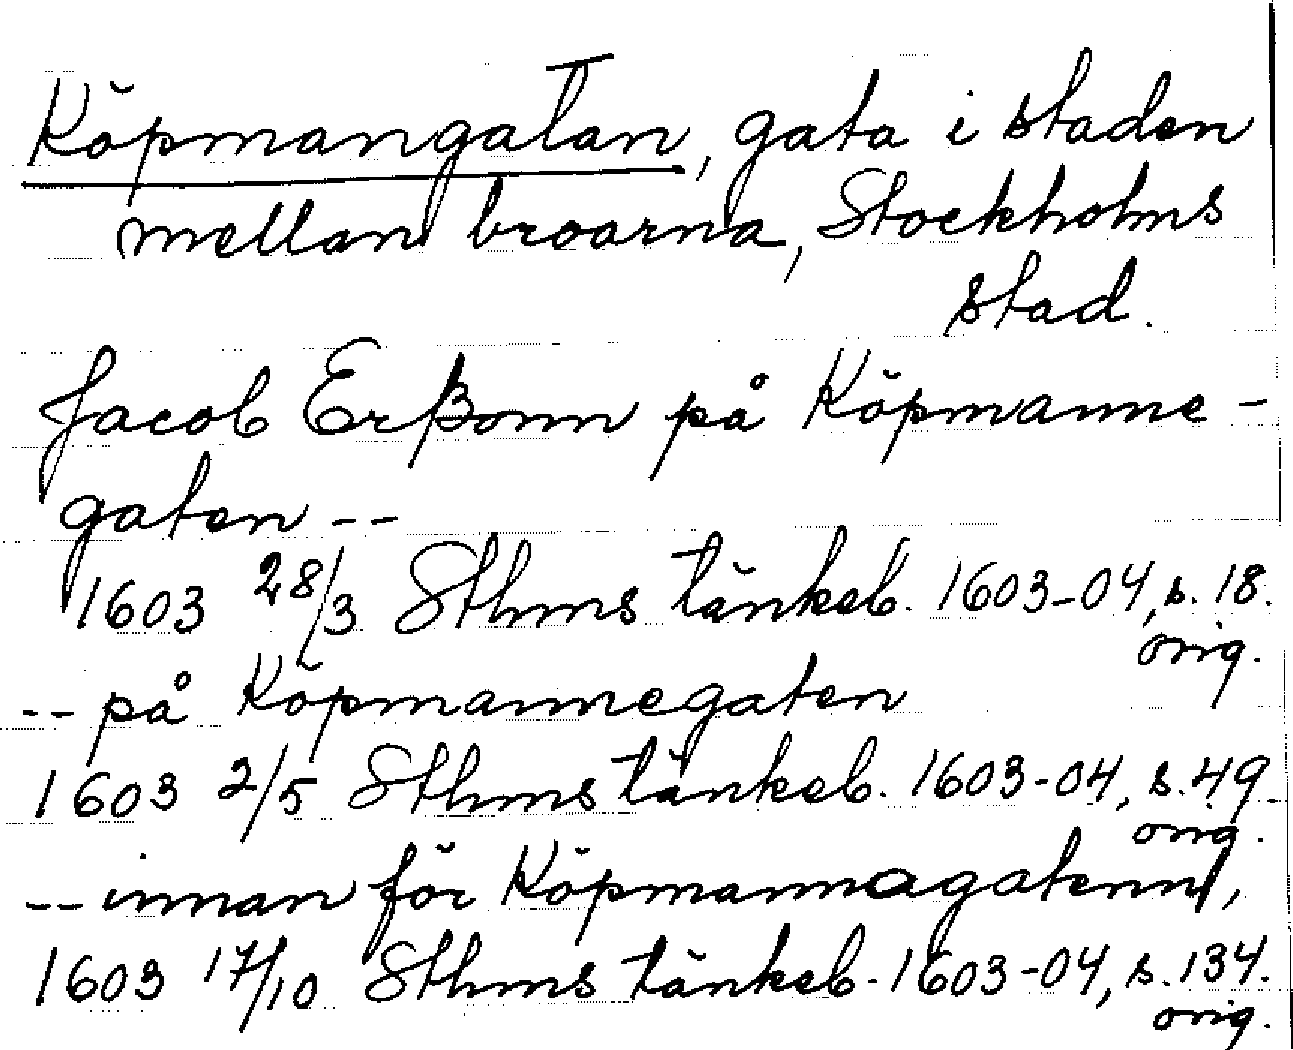 Köpmangatan, gata i staden
mellan broarna, Stockholms
stad.
Jacob Erßonn på Köpmanne-
gaten --
1603 28/3 Sthms tänkeb. 1603-04, s. 18.
orig.
-- på Köpmannegaten
1603 2/5 Sthms tänkeb. 1603-04, s. 49
orig.
-- innan för Köpmannagatenn,
1603 17/10 Sthms tänkeb. 1603-04, s. 134.
orig.